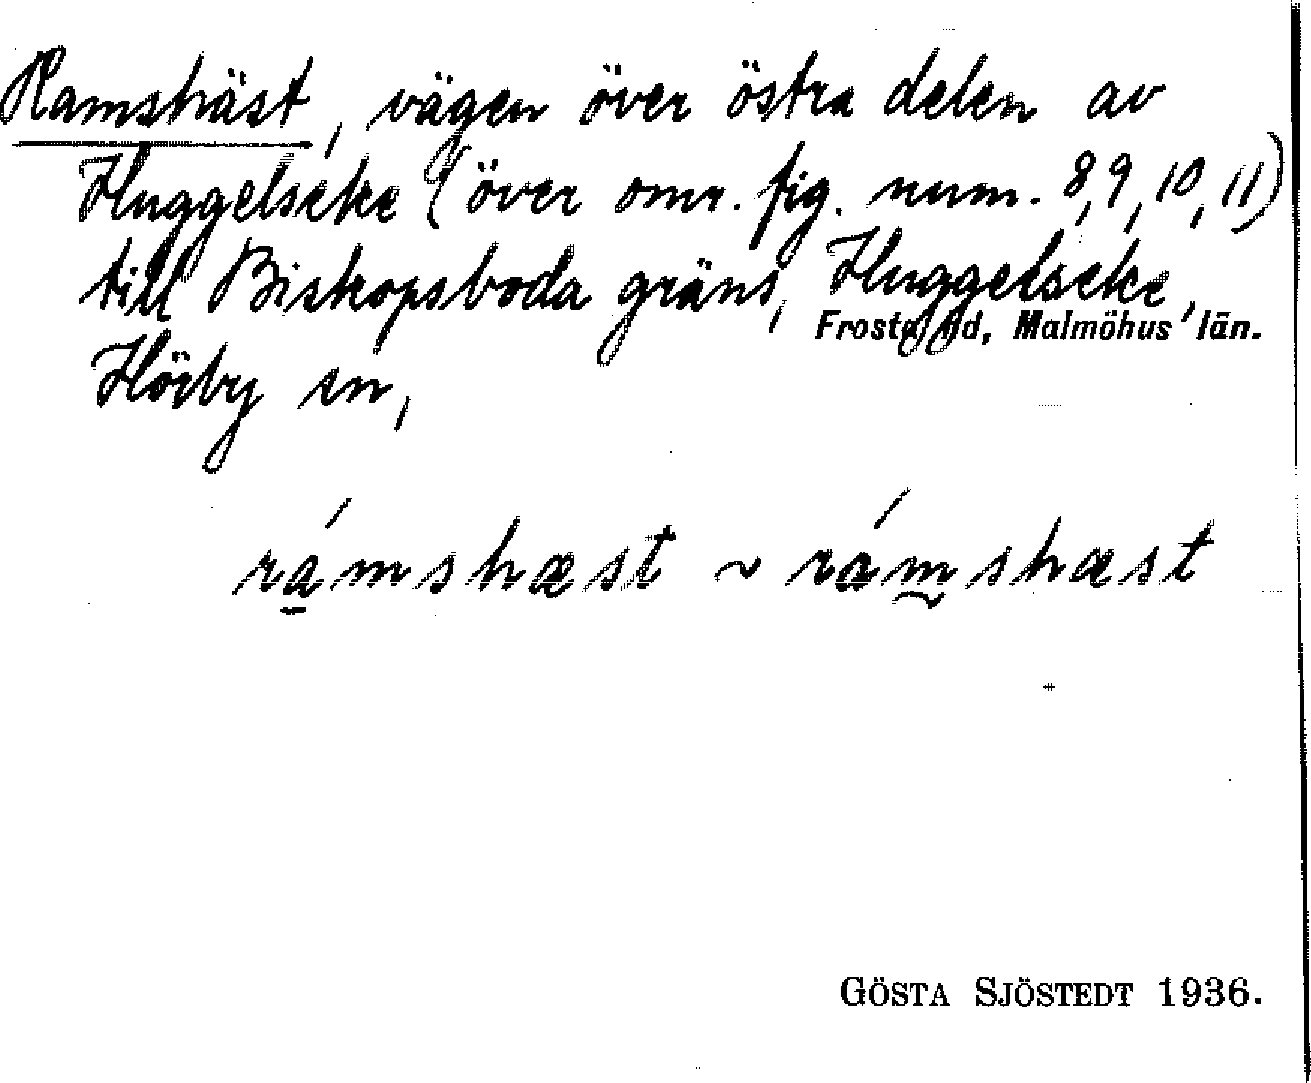 Ramshäst, vägen över östra delen av
Huggelseke (över omr. fig. num. 8, 9, 10, 11)
till Biskopsboda gräns, Huggelseke,
Frosta hd, Malmöhus län.
Hörby sn,
rámshæst ~ rám̰shæst
GÖSTA SJÖSTEDT 1936.